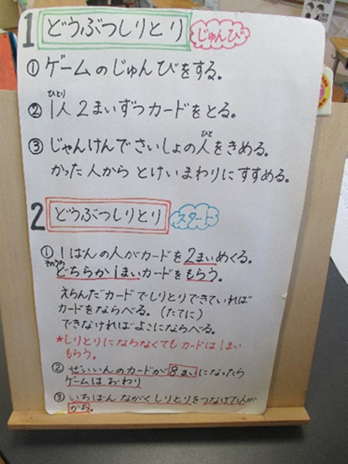 1 どうぶつしりとり じゅんび
① ゲームのじゅんびをする。
ひとり
② 1人2まいずつカードをとる。
ひと
③ じゃんけんでさいしょの人をきめる。
かった人から とけいまわりにすすめる。
2 どうぶつしりとり スタート
① 1ばんの人がカードを2まいめくる。
そのうち
どちらか1まいカードをもらう。
えらんだカードでしりとりできていれば
カードをならべる。(たてに)
できなければよこにならべる。
★しりとりにならなくてもカードは1まい
もらう。
② ぜんいんのカードが8まいになったら
ゲームはおわり
③ いちばんながくしりとりをつなげた人が
かち。